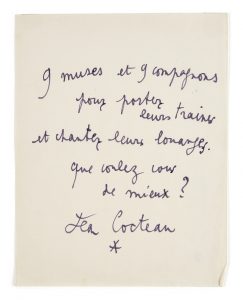 9 muses et 9 compagnons
pour porter
leurs traines
et chanter leurs louanges.
que voulez vous
de mieux ?
Jean Cocteau
*